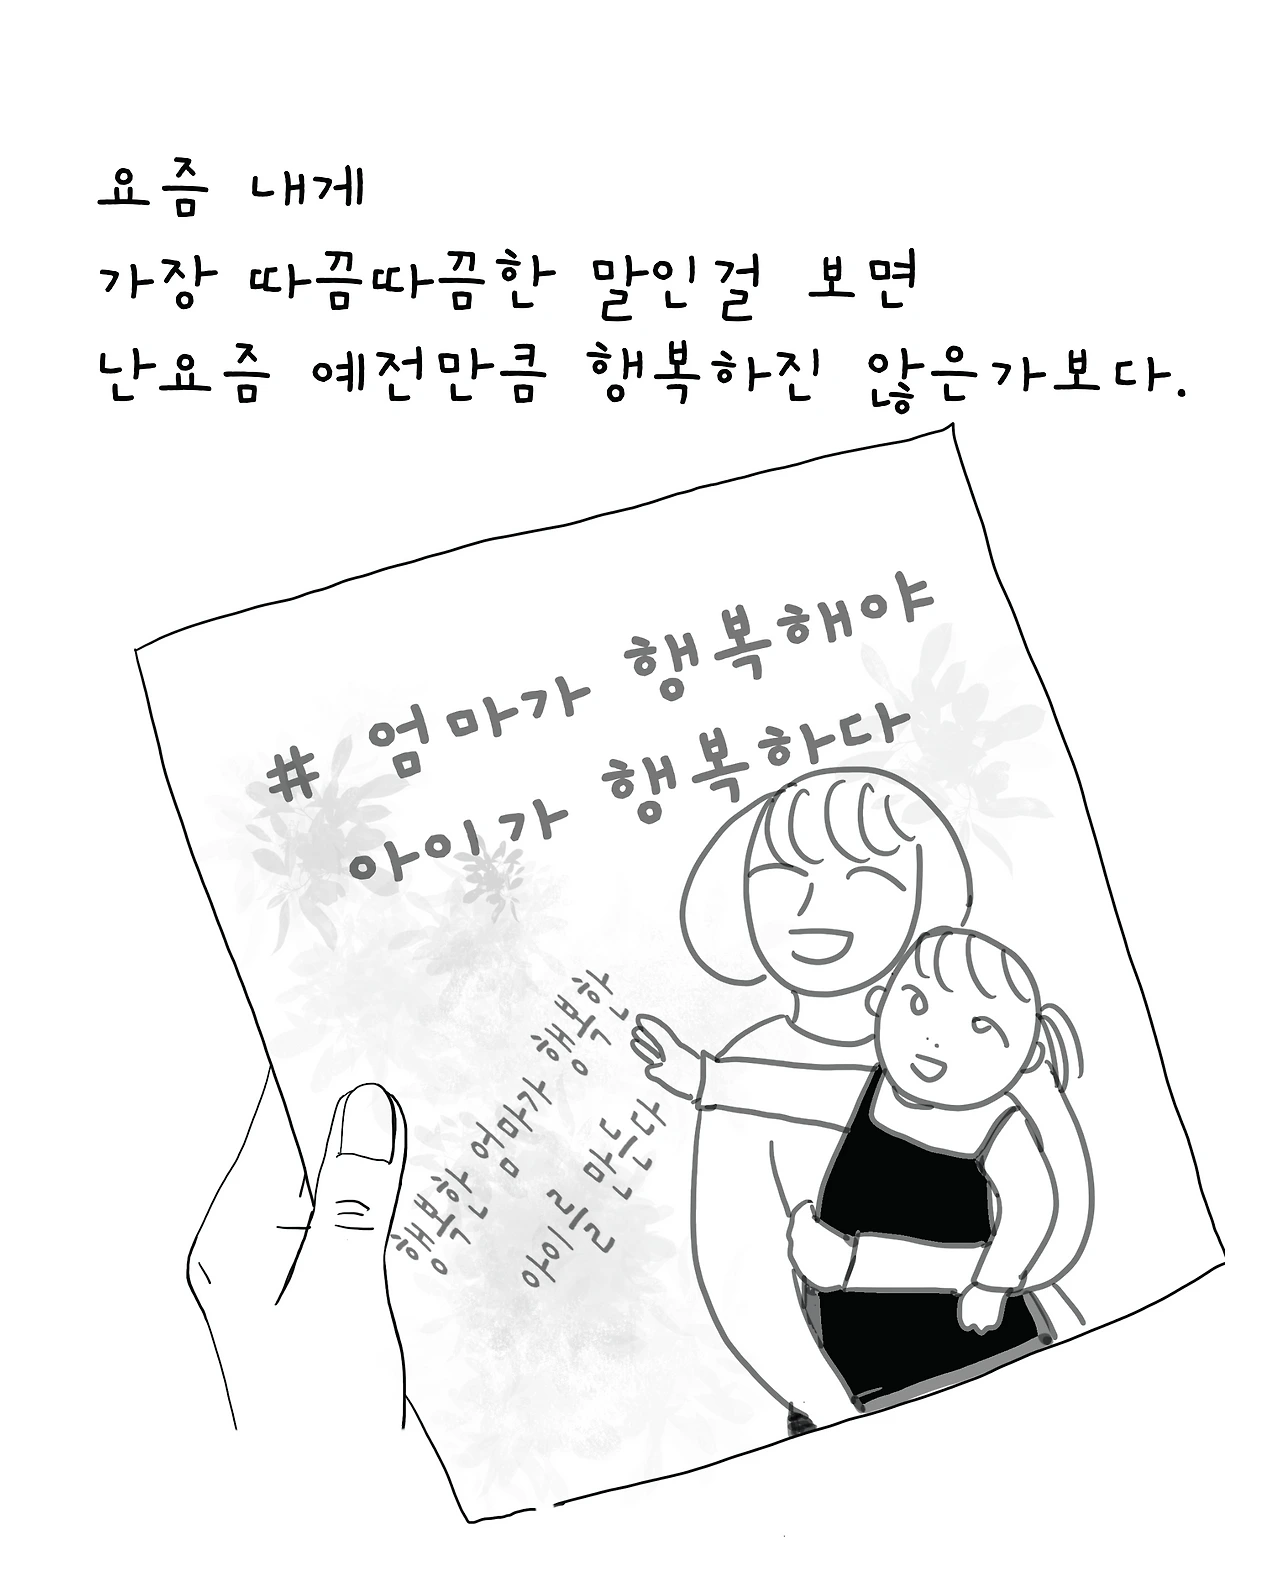 요즘 내게
가장 따끔따끔한 말인걸 보면
난요즘 예전만큼 행복하진 않은가보다.
# 엄마가 행복해야
아이가 행복하다
행복한 엄마가 행복한
아이를 만든다